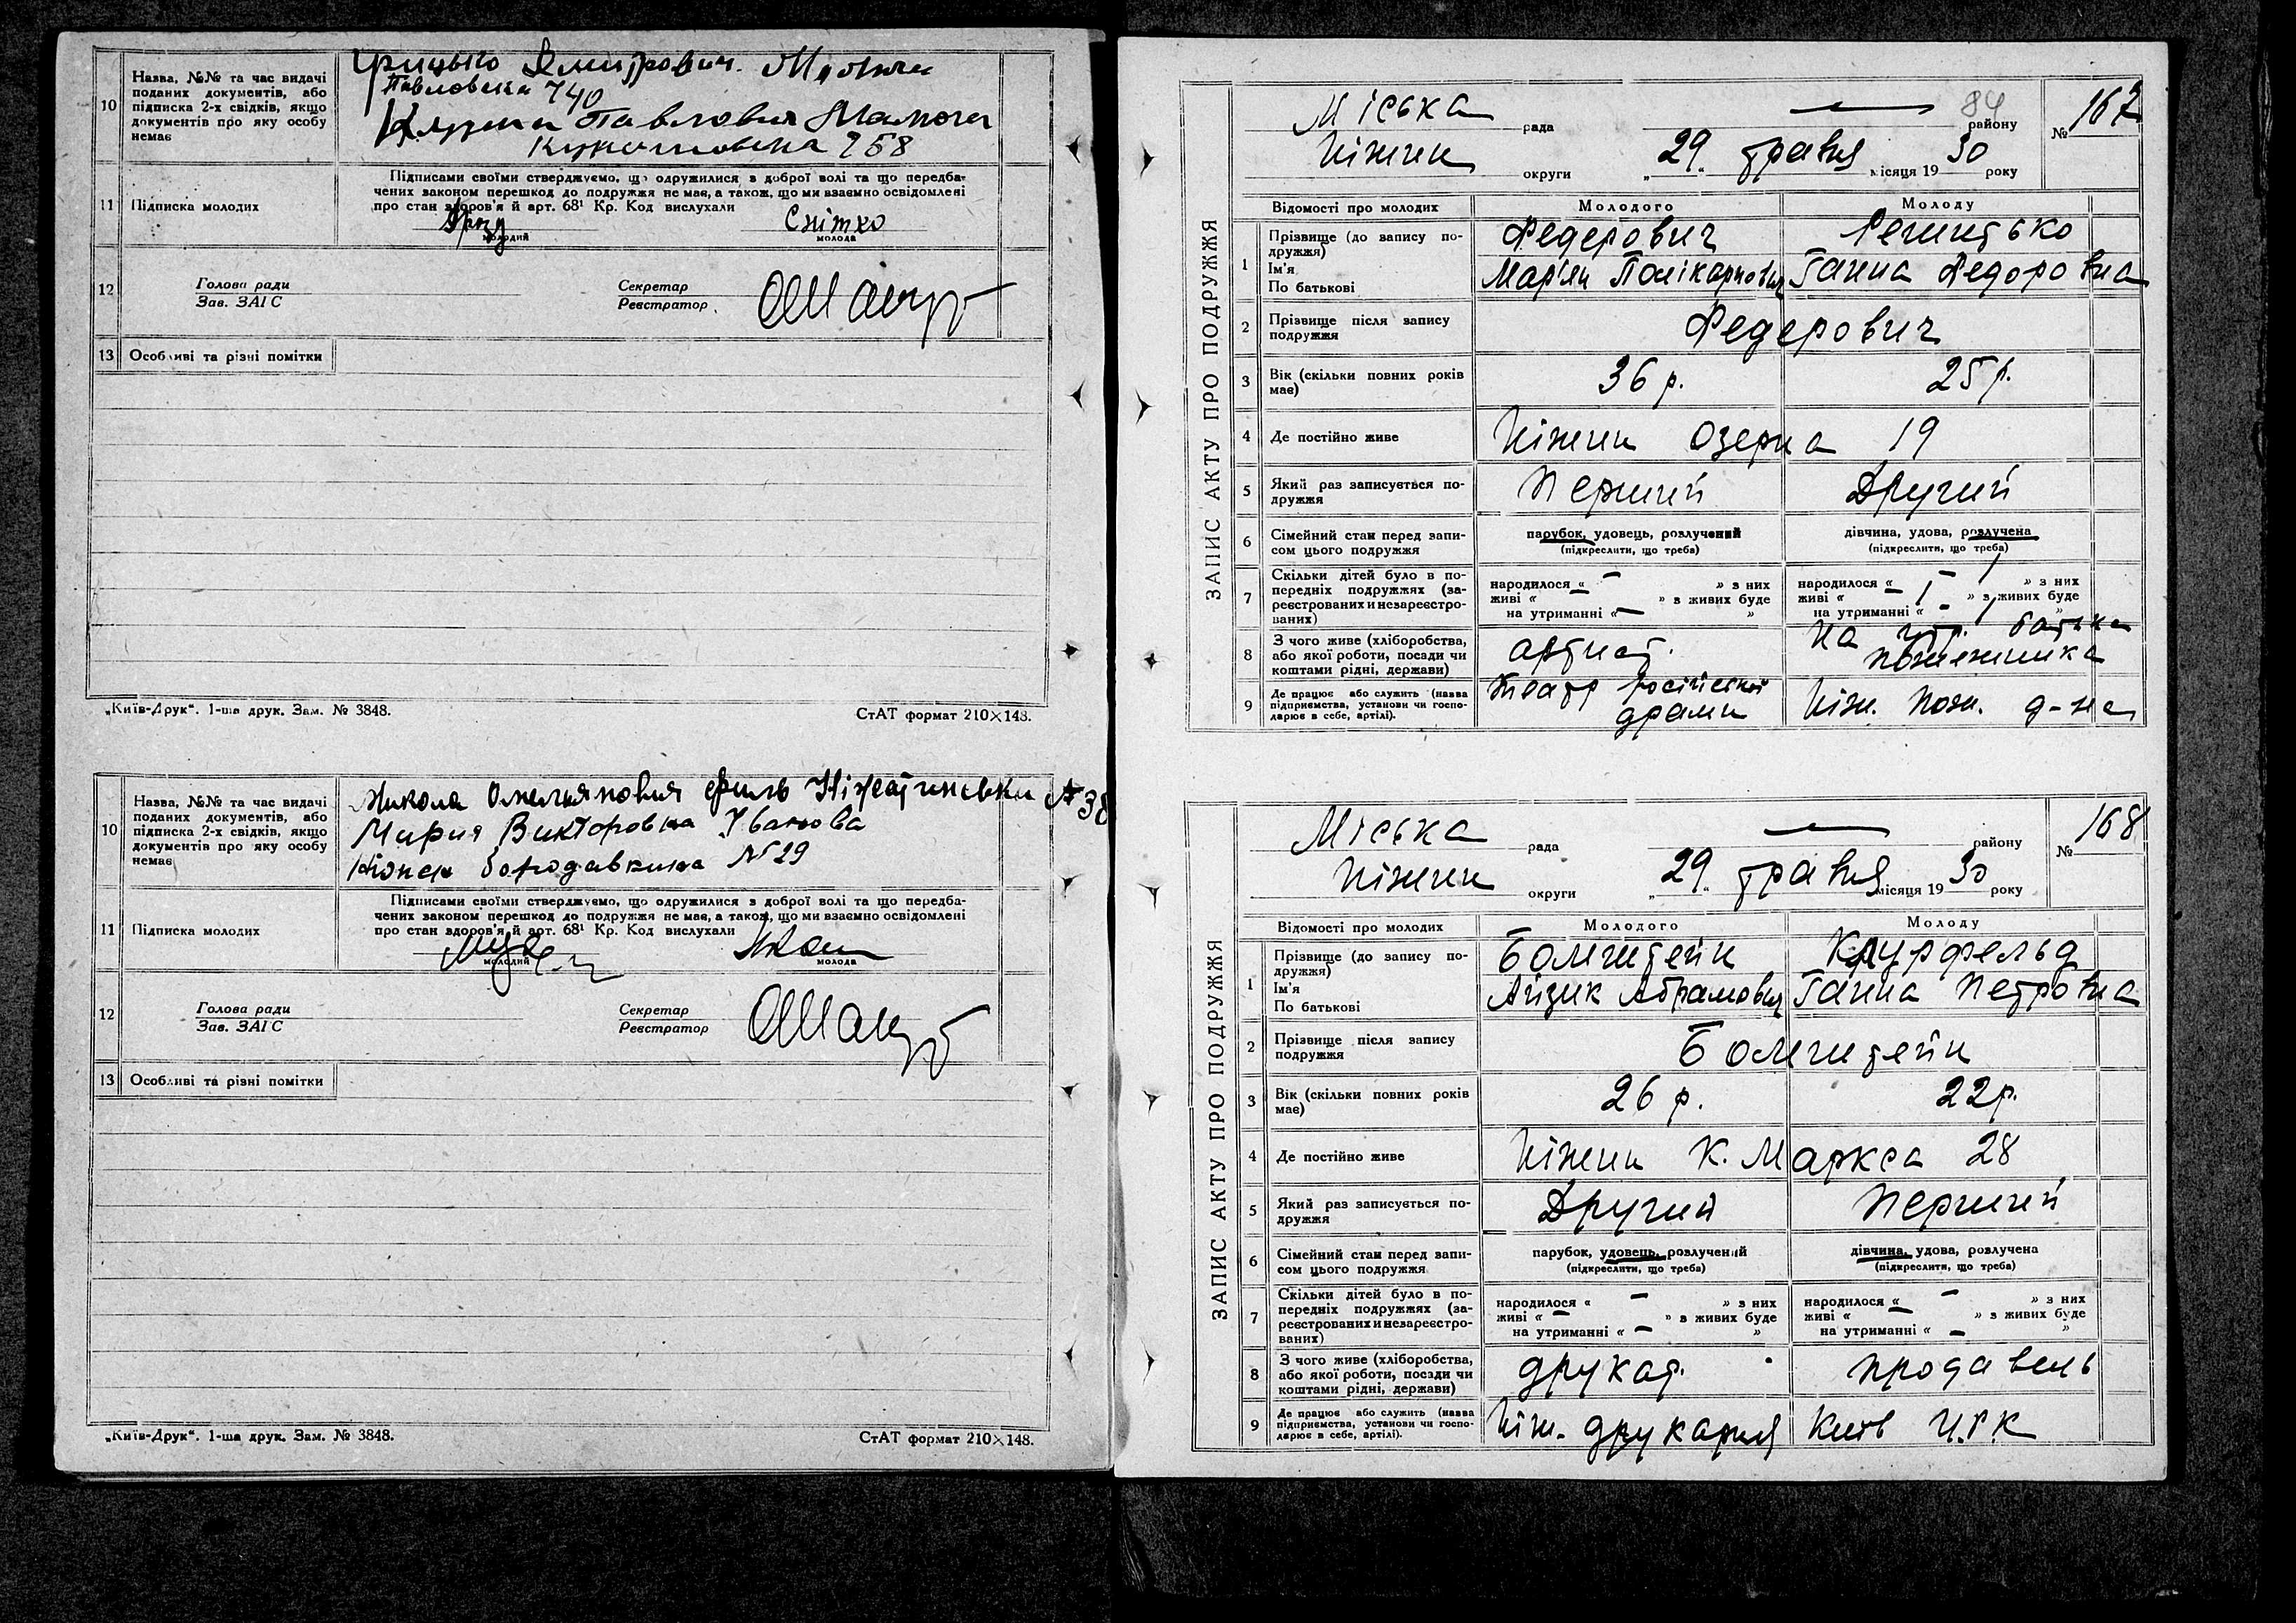 10
Назва, №№ та час видачі
поданих документів, або
підписка 2-х свідків, якщо
документів про яку особу
немає
Грицько Дмитрович
Павловська 740
Павловия
258
11
Підписка молодих
Підписами своїми стверджуємо, що одружилися з доброї волі та що передба-
чених законом перешкод до подружжя не має, а також, що ми взаємно освідомлені
про стан здоров'я й арт. 68¹ Кр. Код вислухали
молодий
Снітко
молода
12
Голова ради
Зав. ЗАГС
Секретар
Реєстратор
13
Особливі та різні помітки
„Київ-Друк“. 1-ша друк. Зам. № 3848.
СтАТ формат 210×148.
10
Назва, №№ та час видачі
поданих документів, або
підписка 2-х свідків, якщо
документів про яку особу
немає
Микола Омельянович № 38
Мария Викторовна Іванова
№ 29
11
Підписка молодих
Підписами своїми стверджуємо, що одружилися з доброї волі та що передба-
чених законом перешкод до подружжя не має, а також, що ми взаємно освідомлені
про стан здоров'я й арт. 68¹ Кр. Код вислухали
молодий
молода
12
Голова ради
Зав. ЗАГС
Секретар
Реєстратор
13
Особливі та різні помітки
„Київ-Друк“. 1-ша друк. Зам. № 3848.
СтАТ формат 210×148.
84
ЗАПИС АКТУ ПРО ПОДРУЖЖЯ
Міська рада — району
№ 167
Ніжин округи „29“ травня місяця 1930 року
Відомості про молодих
Молодого
Молоду
1
Прізвище (до запису по-
дружжя)
Ім'я
По батькові
Федерович
Мар'ян Полікарпович
Ганна Федоровна
2
Прізвище після запису
подружжя
Федерович
3
Вік (скільки повних років
має)
36 р.
25 р.
4
Де постійно живе
Ніжин Озерна 19
5
Який раз записується по-
дружжя
Перший
Другий
6
Сімейний стан перед запи-
сом цього подружжя
парубок, удовець, розлучений
(підкреслити, що треба)
дівчина, удова, розлучена
(підкреслити, що треба)
7
Скільки дітей було в по-
передніх подружжях (за-
реєстрованих и незареєстро-
ваних)
народилося « — » з них
живі « » в живих буде
на утриманні « — »
народилося « — » з них
живі « » в живих буде
на утриманні « - »
8
З чого живе (хліборобства,
або якої роботи, посади чи
коштами рідні, держави)
артист.
на утр. батька
пожежника
9
Де працює або служить (назва
підприємства, установи чи госпо-
дарює в себе, артілі).
Театр російської
драми
Ніж. пож. д-на
ЗАПИС АКТУ ПРО ПОДРУЖЖЯ
Міська рада — району
№ 168
Ніжин округи „29“ травня місяця 1930 року
Відомості про молодих
Молодого
Молоду
1
Прізвище (до запису по-
дружжя)
Ім'я
По батькові
Бомштейн
Круpфельд
Айзик Абрамович
Ганна Петровна
2
Прізвище після запису
подружжя
Бомштейн
3
Вік (скільки повних років
має)
26 р.
22 р.
4
Де постійно живе
Ніжин К. Маркса 28
5
Який раз записується по-
дружжя
Другий
Перший
6
Сімейний стан перед запи-
сом цього подружжя
парубок, удовець, розлучений
(підкреслити, що треба)
дівчина, удова, розлучена
(підкреслити, що треба)
7
Скільки дітей було в по-
передніх подружжях (за-
реєстрованих и незареєстро-
ваних)
народилося « — » з них
живі « — » в живих буде
на утриманні « — »
народилося « — » з них
живі « — » з живих буде
на утриманні « — »
8
З чого живе (хліборобства,
або якої роботи, посади чи
коштами рідні, держави)
друкар.
продавець
9
Де працює або служить (назва
підприємства, установи чи госпо-
дарює в себе, артілі).
Ніж. друкарня
Київ Ц.Р.К